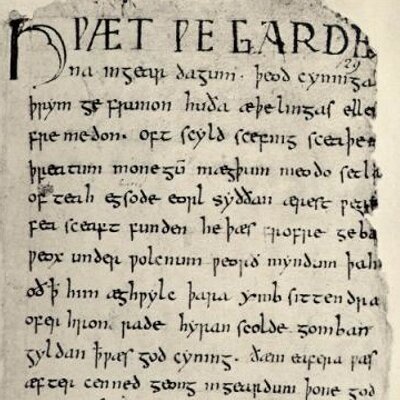 HǷÆT ǷE GARDE
na ingear dagum. þeod cyninga
þrym ge frunon huða æþelingas elle
fremedon. oft scyld scefing sceaþe
þreatum monegū mægþum meodo setla
of teah egsode eorl syððan ærest
fea sceaft funden he þæs frofre geba
ƿeox under ƿolcnum ƿeorð myndum þah
oð ꝥ him æghƿylc þara ymb sittendra
ofer hron rade hyran scolde gomban
gyldan ꝥ ƿæs god cyning. ðæm eafera ƿæs
æfter cenned geong ingeardum þone god